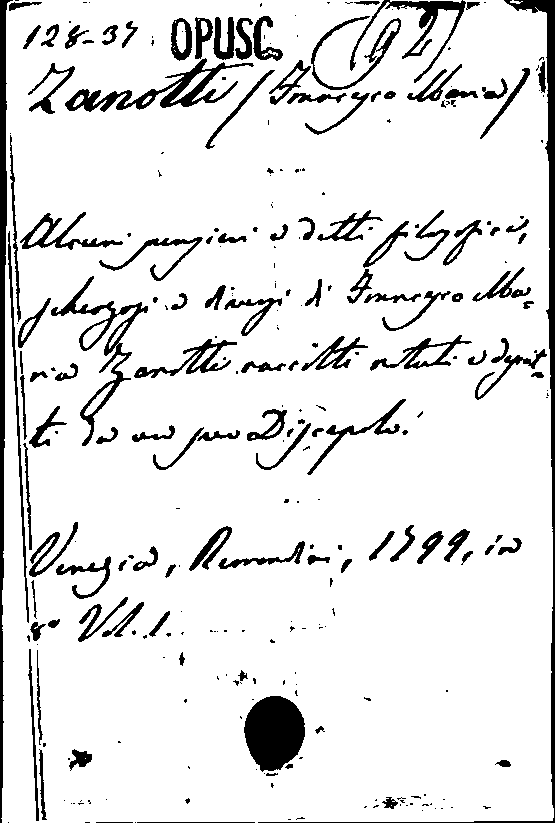 128-37 OPUSC. (92)
Zanotti (Francesco Maria)
Alcuni pensieri e detti filosofici,
scherzosi e diversi di Francesco Ma=
ria Zanotti raccolti notati e
ti da un suo Discepolo.
Venezia, Remondini, 1799, in
8° Vol. 1.